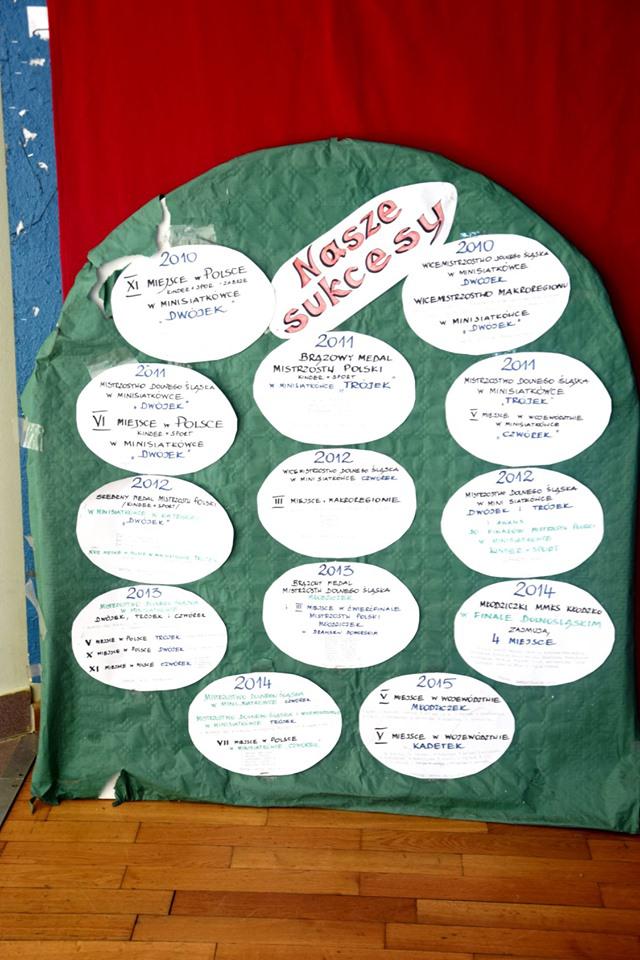 Nasze
sukcesy
2010
XI MIEJSCE W POLSCE
KINDER + SPORT - ZABRZE
W MINISIATKÓWCE
"DWÓJEK"
2010
WICEMISTRZOSTWO DOLNEGO ŚLĄSKA
W MINISIATKÓWCE
DWÓJEK
WICEMISTRZOSTWO MAKROREGIONU
W MINISIATKÓWCE
"DWÓJEK"
2011
MISTRZOSTWO DOLNEGO ŚLĄSKA
W MINISIATKÓWCE
"DWÓJEK"
VI MIEJSCE W POLSCE
KINDER + SPORT
W MINISIATKÓWCE
"DWÓJEK"
2011
BRĄZOWY MEDAL
MISTRZOSTW POLSKI
KINDER + SPORT
W MINISIATKÓWCE "TRÓJEK"
2011
MISTRZOSTWO DOLNEGO ŚLĄSKA
W MINISIATKÓWCE
"TRÓJEK"
V MIEJSCE W WOJEWÓDZTWIE
W MINISIATKÓWCE
"CZWÓREK"
2012
SREBRNY MEDAL MISTRZOSTW POLSKI
/KINDER + SPORT/
W MINISIATKÓWCE W KATEGORII
"DWÓJEK"
2012
WICEMISTRZOSTWO DOLNEGO ŚLĄSKA
W MINI SIATKÓWCE CZWÓREK
III MIEJSCE W MAKROREGIONIE
2012
MISTRZOSTWO DOLNEGO ŚLĄSKA
DWÓJEK I TRÓJEK
I AWANS
DO FINAŁÓW MISTRZOSTW POLSKI
W MINISIATKÓWCE
KINDER + SPORT
2013
MISTRZOSTWO DOLNEGO ŚLĄSKA
W MINISIATKÓWCE
DWÓJEK, TRÓJEK I CZWÓREK
V MIEJSCE W POLSCE TRÓJEK
X MIEJSCE W POLSCE DWÓJEK
XI MIEJSCE W POLSCE CZWÓREK
2013
BRĄZOWY MEDAL
MISTRZOSTW DOLNEGO ŚLĄSKA
MŁODZICZEK
I III MIEJSCE W ĆWIERĆFINALE
MISTRZOSTW POLSKI
MŁODZICZEK
2014
MŁODZICZKI MMKS KŁODZKO
W FINALE DOLNOŚLĄSKIM
ZAJMUJĄ
4 MIEJSCE
2014
MISTRZOSTWO DOLNEGO ŚLĄSKA
W MINISIATKÓWCE CZWÓREK
MISTRZOSTWO DOLNEGO ŚLĄSKA
W MINISIATKÓWCE TRÓJEK
VII MIEJSCE W POLSCE
W MINISIATKÓWCE CZWÓREK
2015
V MIEJSCE W WOJEWÓDZTWIE
MŁODZICZEK
V MIEJSCE W WOJEWÓDZTWIE
KADETEK